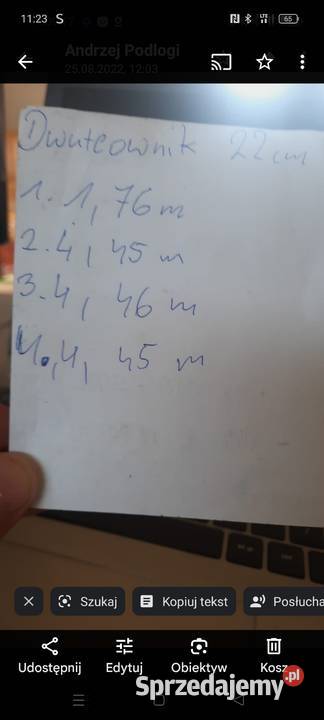 11:23 S
65
Andrzej Podlogi
25.08.2022, 12:03
Dwuteownik 22cm
1. 1,76 m
2. 4,45 m
3. 4,46 m
4. 4,45 m
Szukaj
Kopiuj tekst
Posłucha
Udostępnij
Edytuj
Obiektyw
Kosz
Sprzedajemy.pl